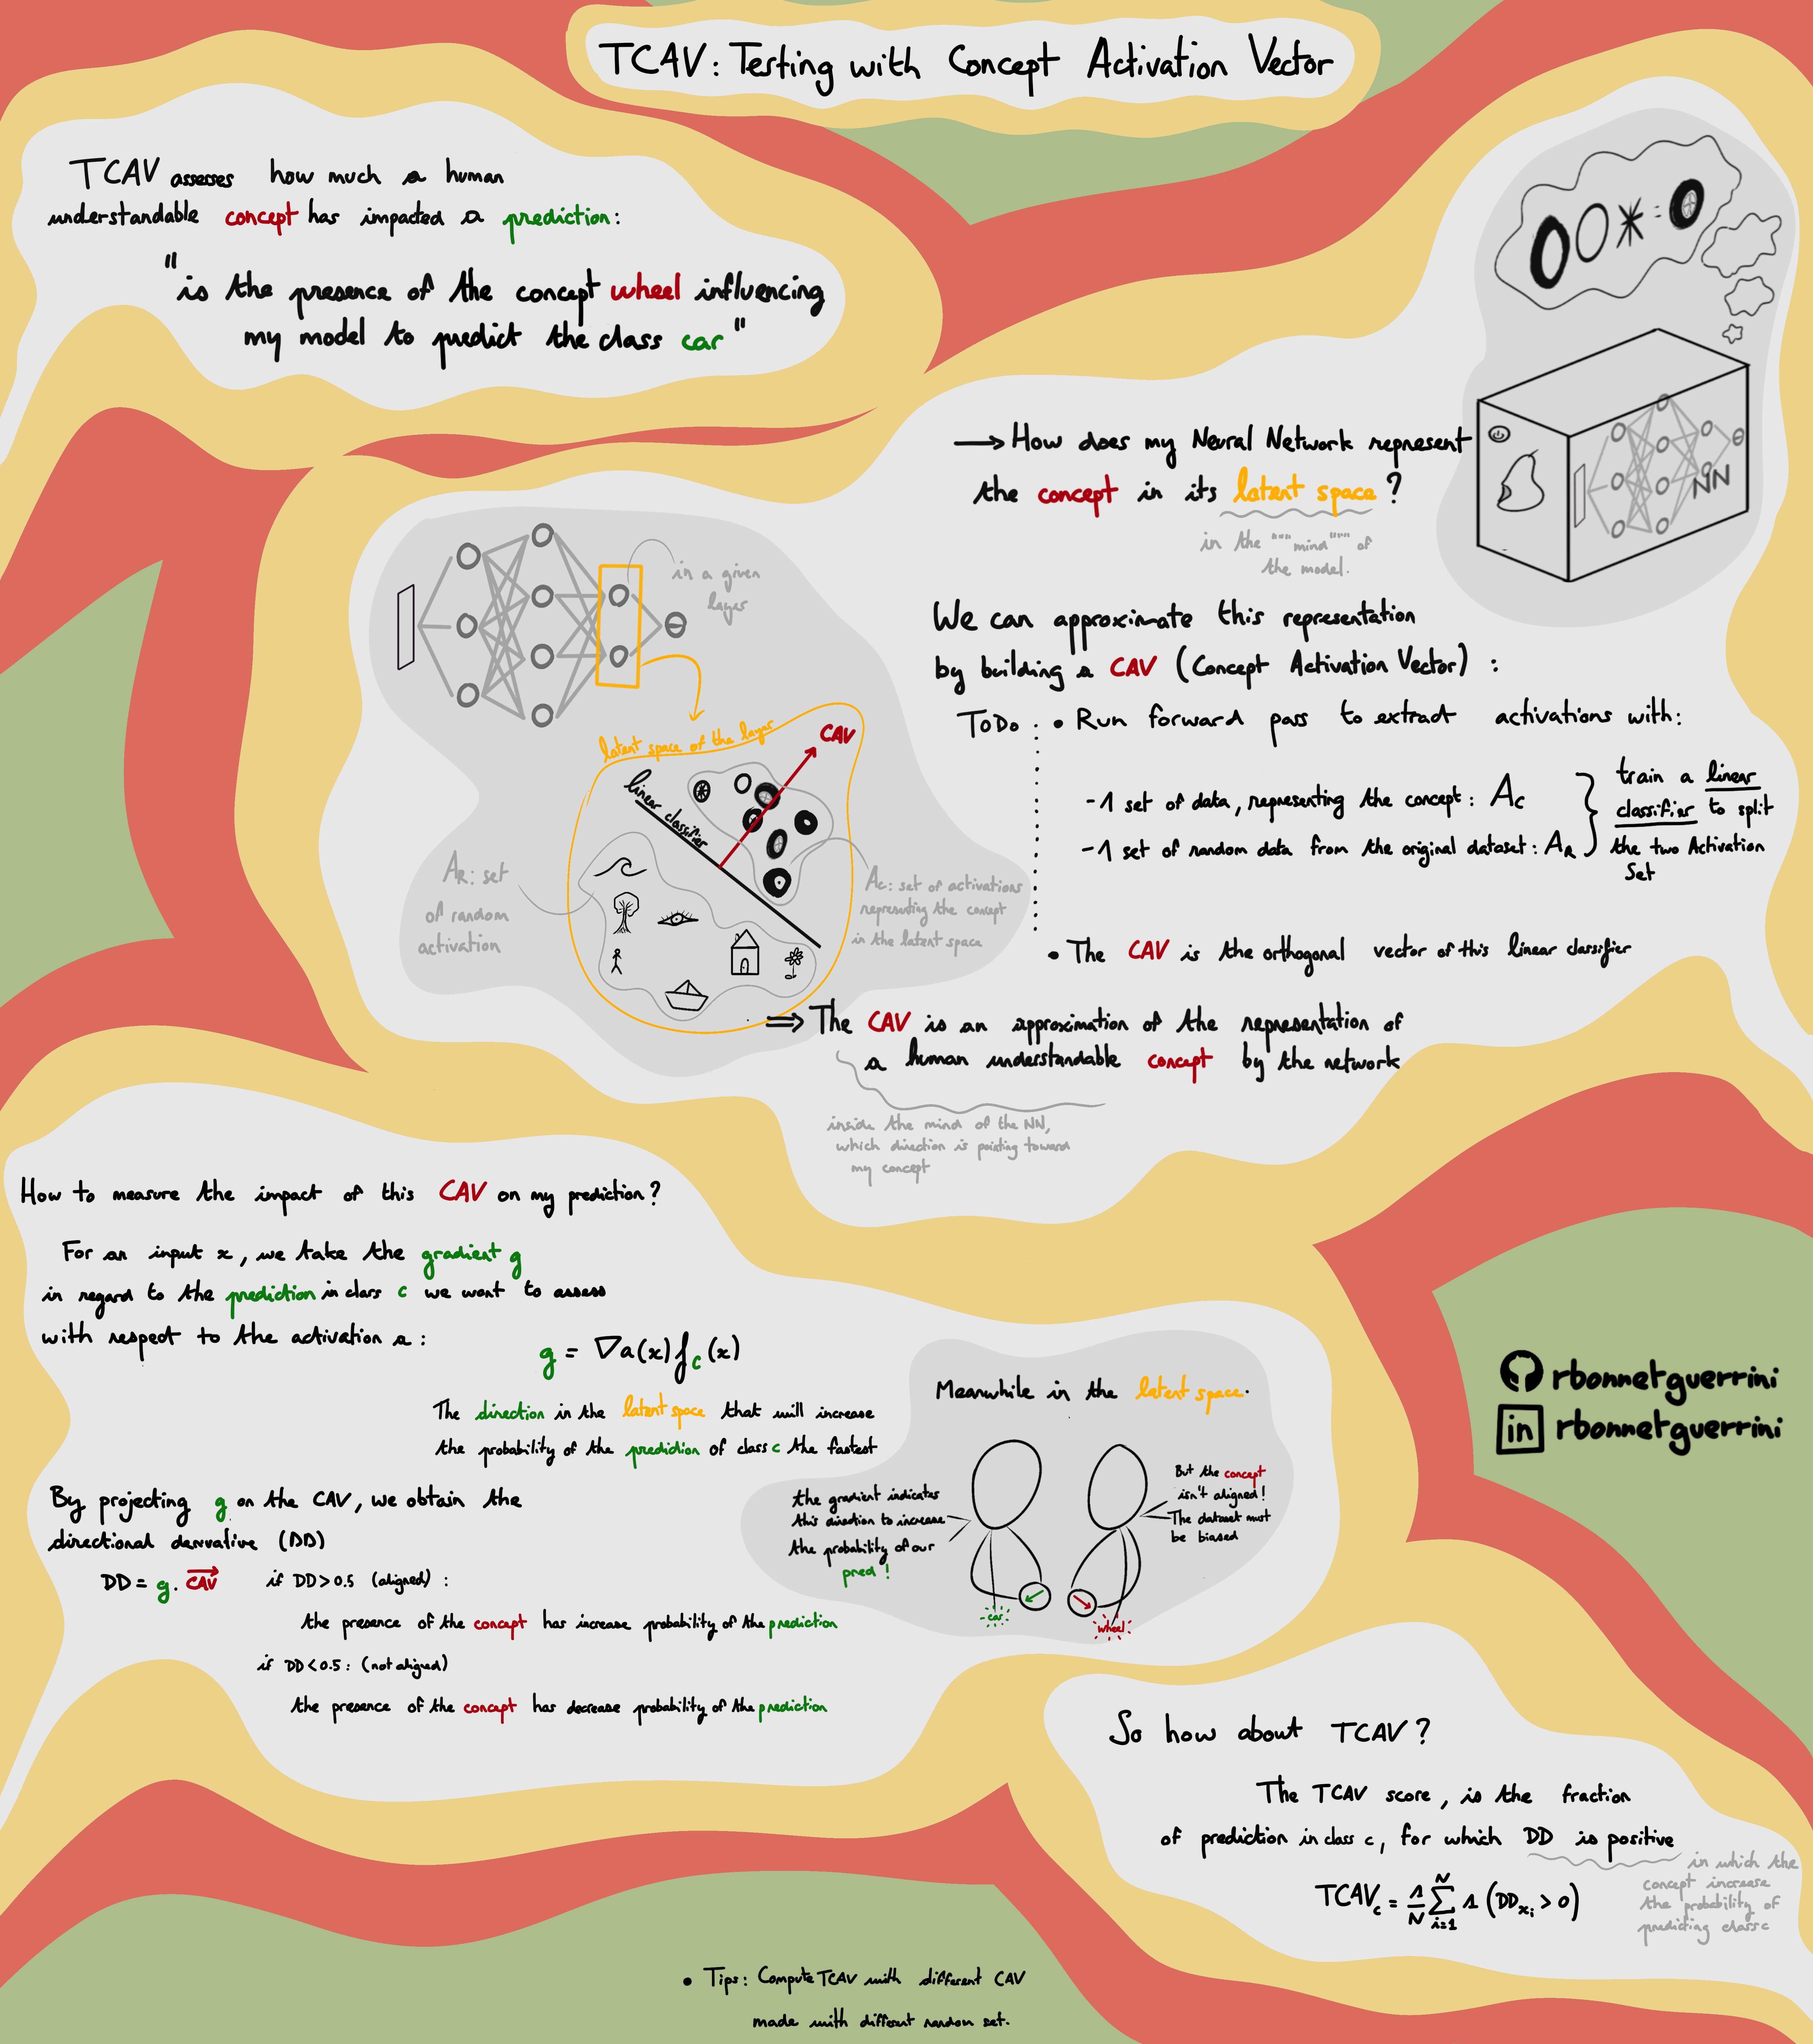 TCAV: Testing with Concept Activation Vector
TCAV assesses how much a human
understandable concept has impacted a prediction:
"is the presence of the concept wheel influencing
my model to predict the class car"
→ How does my Neural Network represent
the concept in its latent space ?
in the """mind""" of
the model.
NN
We can approximate this representation
by building a CAV (Concept Activation Vector) :
ToDo : • Run forward pass to extract activations with:
- 1 set of data, representing the concept: Ac
- 1 set of random data from the original dataset: AR
train a linear
classifier to split
the two Activation
Set
• The CAV is the orthogonal vector of this linear classifier
⇒ The CAV is an approximation of the representation of
a human understandable concept by the network
inside the mind of the NN,
which direction is pointing toward
my concept
in a given
layer
latent space of the layer
CAV
linear classifier
AR: set
of random
activation
Ac: set of activations
representing the concept
in the latent space
How to measure the impact of this CAV on my prediction?
For an input x, we take the gradient g
in regard to the prediction in class c we want to assess
with respect to the activation a :
g = ∇a(x) fc(x)
The direction in the latent space that will increase
the probability of the prediction of class c the fastest
By projecting g on the CAV, we obtain the
directional derivative (DD)
DD = g . CAV if DD > 0.5 (aligned) :
the presence of the concept has increase probability of the prediction
if DD < 0.5 : (not aligned)
the presence of the concept has decrease probability of the prediction
Meanwhile in the latent space.
the gradient indicates
this direction to increase
the probability of our
pred !
But the concept
isn't aligned !
The dataset must
be biased
car
wheel
rbonnetguerrini
in rbonnetguerrini
So how about TCAV ?
The TCAV score, is the fraction
of prediction in class c, for which DD is positive
in which the
concept increase
the probability of
predicting class c
TCAVc = 1/N Σ i=1 N 1 (DDxi > 0)
• Tips: Compute TCAV with different CAV
made with different random set.